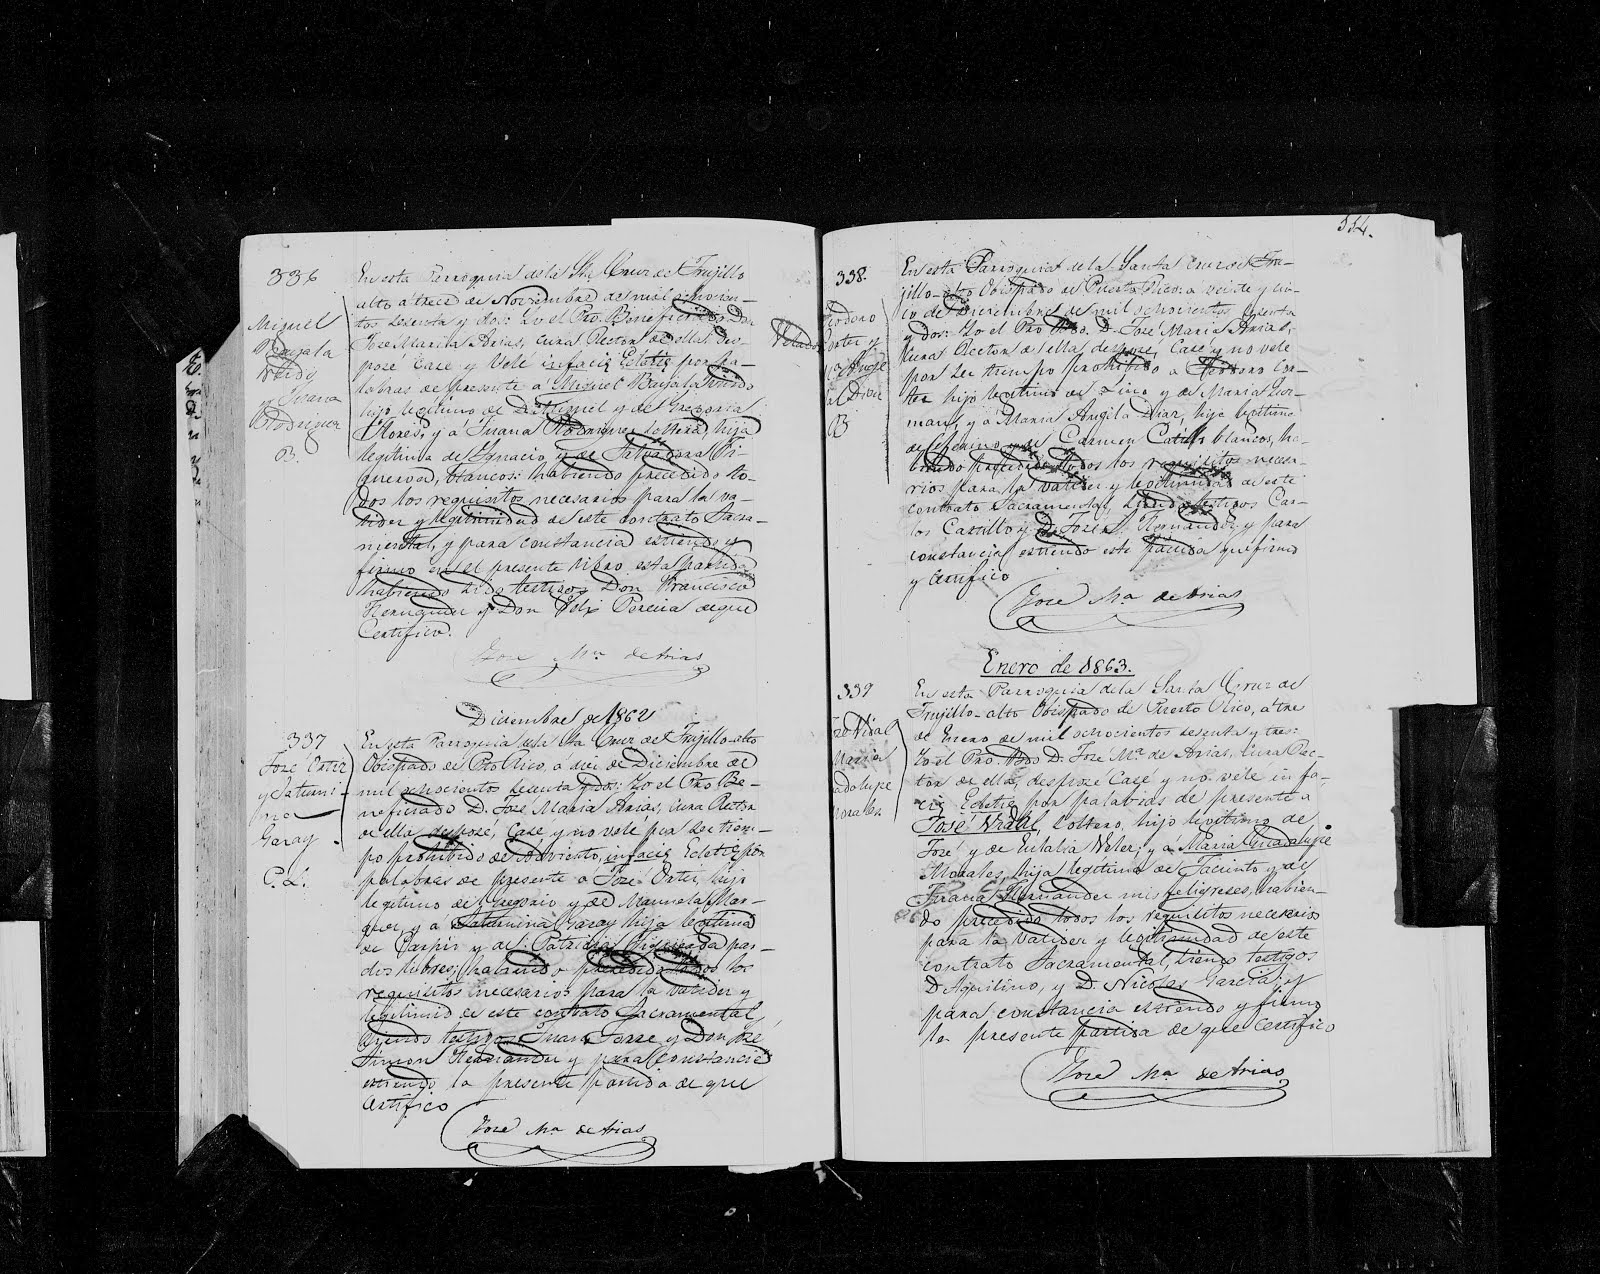 336
Miguel
Barjala
viudo
y Juana
Rodriguez
B.
En esta Parroquia de la Sta Cruz de Trujillo
alto a trece de Noviembre de mil ochocien-
tos sesenta y dos: Yo el Pro. Beneficiado Don
José Maria Arias, Cura Rector de ella Des-
posé Casé y Velé infacie Eclecie por pa-
labras de presente á Miguel Barjala viudo
hijo legitimo de Miguel y de Gregoria
Flores, y á Juana Rodriguez soltera, hija
legitima de Ignacio y de Salvadora Fi-
gueroa, blancos: habiendo precedido to-
dos los requisitos necesarios para la va-
lidez y legitimidad de este contrato Sacra-
mental, y para constancia estiendo y
firmo en el presente libro esta partida
habiendo sido testigos Don Francisco
y Don Felix Pereira de que
Certifico.
José Ma. de Arias
Diciembre de 1862
337
José Ortiz
y Saturni-
na
Garay.
P. L.
En esta Parroquia de la Sta Cruz de Trujillo-alto
Obispado de Pto Rico, a diez de Diciembre de
mil ochociento sesenta y dos: Yo el Pro. Be-
neficiado D. José Maria Arias, Cura Rector
de ella, desposé, Casé y no velé por ser tiem-
po prohibido de Adviento, infacie Eclecie por
palabras de presente a José Ortiz, hijo
legitimo de Gregorio y de Manuela Mar-
quez, y á Saturnina Garay hija legitima
de Gaspar y de Patricia Figueroa par-
dos libres; habiendo precedido todos los
requisitos necesarios para la validez y
legitimid de este contrato Sacramental,
Siendo testigos Juan José y Don José
Simon Hernandez y para constancia
estiendo la presente partida de que
Certifico
José Ma. de Arias
Velado
554.
338.
Teodoro
Cortez y
Angela
Diaz
B
En esta Parroquia de la Santa Cruz de Tru-
jillo-alto Obispado de Puerto Rico: a veinte y cin-
co de Diciembre de mil ochocientos sesenta
y dos: Yo el Pro Bdo. D. José Maria Arias,
Cura Rector de ella desposé, Casé y no velé
por ser tiempo prohibido a Teodoro Cor-
tez hijo legitimo de Lino y de Maria Guz-
man, y a Maria Angela Diaz, hija legitima
de Ceferino y de Carmen Castillo blancos, ha-
biendo precedido todos los requisitos necesa-
rios para la validez y legitimidad de este
contrato Sacramental, Siendo testigos Car-
los Castillo y D. José S. Hernandez y para
constancia estiendo esta partida que firmo
y Certifico
José Ma. de Arias
Enero de 1863.
339
José Vidal
Maria
Guadalupe
Morales.
En esta Parroquia de la Santa Cruz de
Trujillo-alto Obispado de Puerto Rico, a tres
de Enero de mil ochocientos sesenta y tres:
Yo el Pro. Bdo D. Jose Ma. de Arias, Cura Rec-
tor de ella, desposé Casé y no velé in fa-
cie Eclecie por palabras de presente a
José Vidal, soltero, hijo legitimo de
José y de Eulalia Veler; y á Maria Guadalupe
Morales, hija legitima de Jacinto y de
Juana Hernandez mis feligreses, habien-
do precedido todos los requisitos necesarios
para la validez y legitimidad de este
contrato Sacramental, siendo testigos
D Aquilino, y D. Nicolas Garcia, y
para constancia estiendo y firmo
la presente partida de que Certifico
José Ma. de Arias